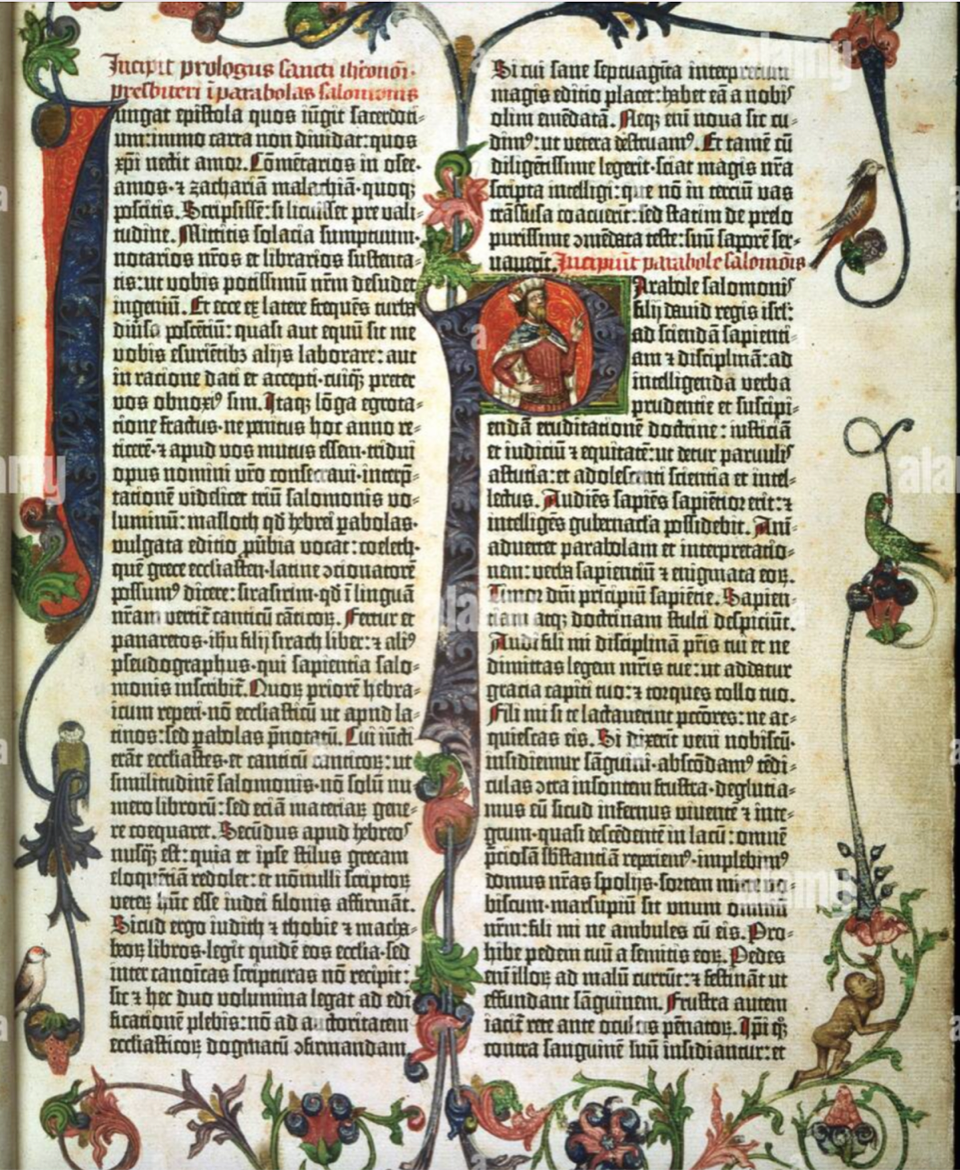 Incipit prologus sancti iheronimi
presbiteri ĩ parabolas salomonis
Iungat epistola quos iũgit sacerdoti-
um: immo carta non diuidat: quos
xp̃i nectit amor. Cõmẽtarios in osee·
amos· ⁊ zachariã malachiã· quoqꝫ
poscitis. Scripsissẽ: si licuisset pre vali-
tudine. Mittitis solacia sumptuum·
notarios nr̃os et librarios sustenta-
tis: ut vobis potissimũ nr̃m desudet
ingeniũ. Et ecce ex latere frequẽs turba
diũsa poscẽtiũ: quasi aut equũ sit me
vobis esuriẽtibꝫ alijs laborare: aut
in racione dati et accepti· cuiꝗꝫ preter
vos obnoxiꝰ sim. Itaqꝫ lõga egrota-
tione fractus· ne penitus hoc anno re-
ticerẽ· ⁊ apud vos mutus essem· tridui
opus nomini vr̃o consecraui· interp̃-
tationẽ videlicet triũ salomonis vo-
luminũ: masloth qđ hebrei ꝑabolas·
vulgata editio ꝓũbia vocat: coeleth·
quẽ grece ecclesiasten· latine ↄcionatorẽ
possumꝰ dicere: sirasirim· qđ ĩ linguã
nr̃am vertit᷑ canticũ cãticoꝝ. Fertur et
panaretos· ihũ filij sirach liber: ⁊ aliꝰ
pseudographus· qui sapientia salo-
monis inscribit᷑. Quoꝝ priorẽ hebra-
icum reperi· nõ ecclesiasticũ ut apud la-
tinos: sed ꝑabolas p̃notatũ. Cui iũcti
erãt ecclesiastes· et canticũ canticoꝝ: ut
similitudinẽ salomonis· nõ solũ nu-
mero librorũ: sed eciã materiaꝝ gene-
re coequaret. Secũdus apud hebreoꝰ
nusꝗꝫ est: quia et ipse stilus grecam
eloquẽtiã redolet: et nõnulli scriptoꝝ
veteꝝ hũc esse iudei filonis affirmãt.
Sicud ergo iudith ⁊ thobie ⁊ macha-
beoꝝ libros· legit quidẽ eos ecclesia· sed
inter canoĩcas scripturas nõ recipit:
sic ⁊ hec duo volumina legat ad edi-
ficationẽ plebis: nõ ad auctoritatem
ecclesiasticoꝝ dogmatũ ↄfirmandam.
Si cui sane septuagĩta interpretum
magis editio placet: habet eã a nobiꝰ
olim emẽdatã. Neqꝫ eni noua sic cu-
dimꝰ: ut vetera destruamꝰ. Et tamẽ cũ
diligẽtissime legerit· sciat magis nr̃a
scripta intelligi: que nõ in terciũ vas
trãsfusa coacuerit: sed statim de prelo
purissime ↄmẽdata teste: suũ saporẽ ser-
uauerit. Incipiũt parabole salomõis
Parabole salomoniꝰ
filij dauid regis isrl̃:
ad sciendã sapienti-
am ⁊ disciplinã: ad
intelligenda verba
prudentie et suscipi-
endã eruditationẽ doctrine: iusticiã
et iudiciũ ⁊ equitatẽ: ut detur paruuliꝰ
astutia: et adolescenti scientia et intel-
lectus. Audiẽs sapiẽs sapiẽtior erit: ⁊
intelligẽs gubernacła possidebit. Ani-
aduertet parabolam et interpretatio-
nem: verba sapientiũ ⁊ enigmata eoꝝ.
Timor dñi prĩcipiũ sapiẽtie. Sapien-
tiam atqꝫ doctrinam stulti despiciũt.
Audi fili mi disciplinã pr̃is tui et ne
dimittas legem mr̃is tue: ut addatur
gracia capiti tuo: ⁊ torques collo tuo.
Fili mi si te lactauerint pct̃ores: ne ac-
quiescas eis. Si dixerit veni nobiscũ·
insidiemur sãguini· abscõdamꝰ tẽdi-
culas ↄtra insontem frustra· deglutia-
mus eũ sicud infernus viuentẽ ⁊ inte-
grum· quasi descẽdentẽ in lacũ: omnẽ
p̃ciosã s̃bstanciã repriemꝰ· implebimꝰ
domus nr̃as spolijs· sortem mitte no-
biscum· marsupiũ sit vnum omniũ
nr̃m: fili mi ne ambules cũ eis. Pro-
hibe pedem tuũ a semitis eoꝝ. Pedes
eni̇̃ illoꝝ ad malũ currũt: ⁊ festinãt ut
effundant sãguinem. Frustra autem
iacit᷑ rete ante oculos pẽnatoꝝ. Ip̃i q̃ꝫ
contra sanguinẽ suũ insidiantur: et
alamy